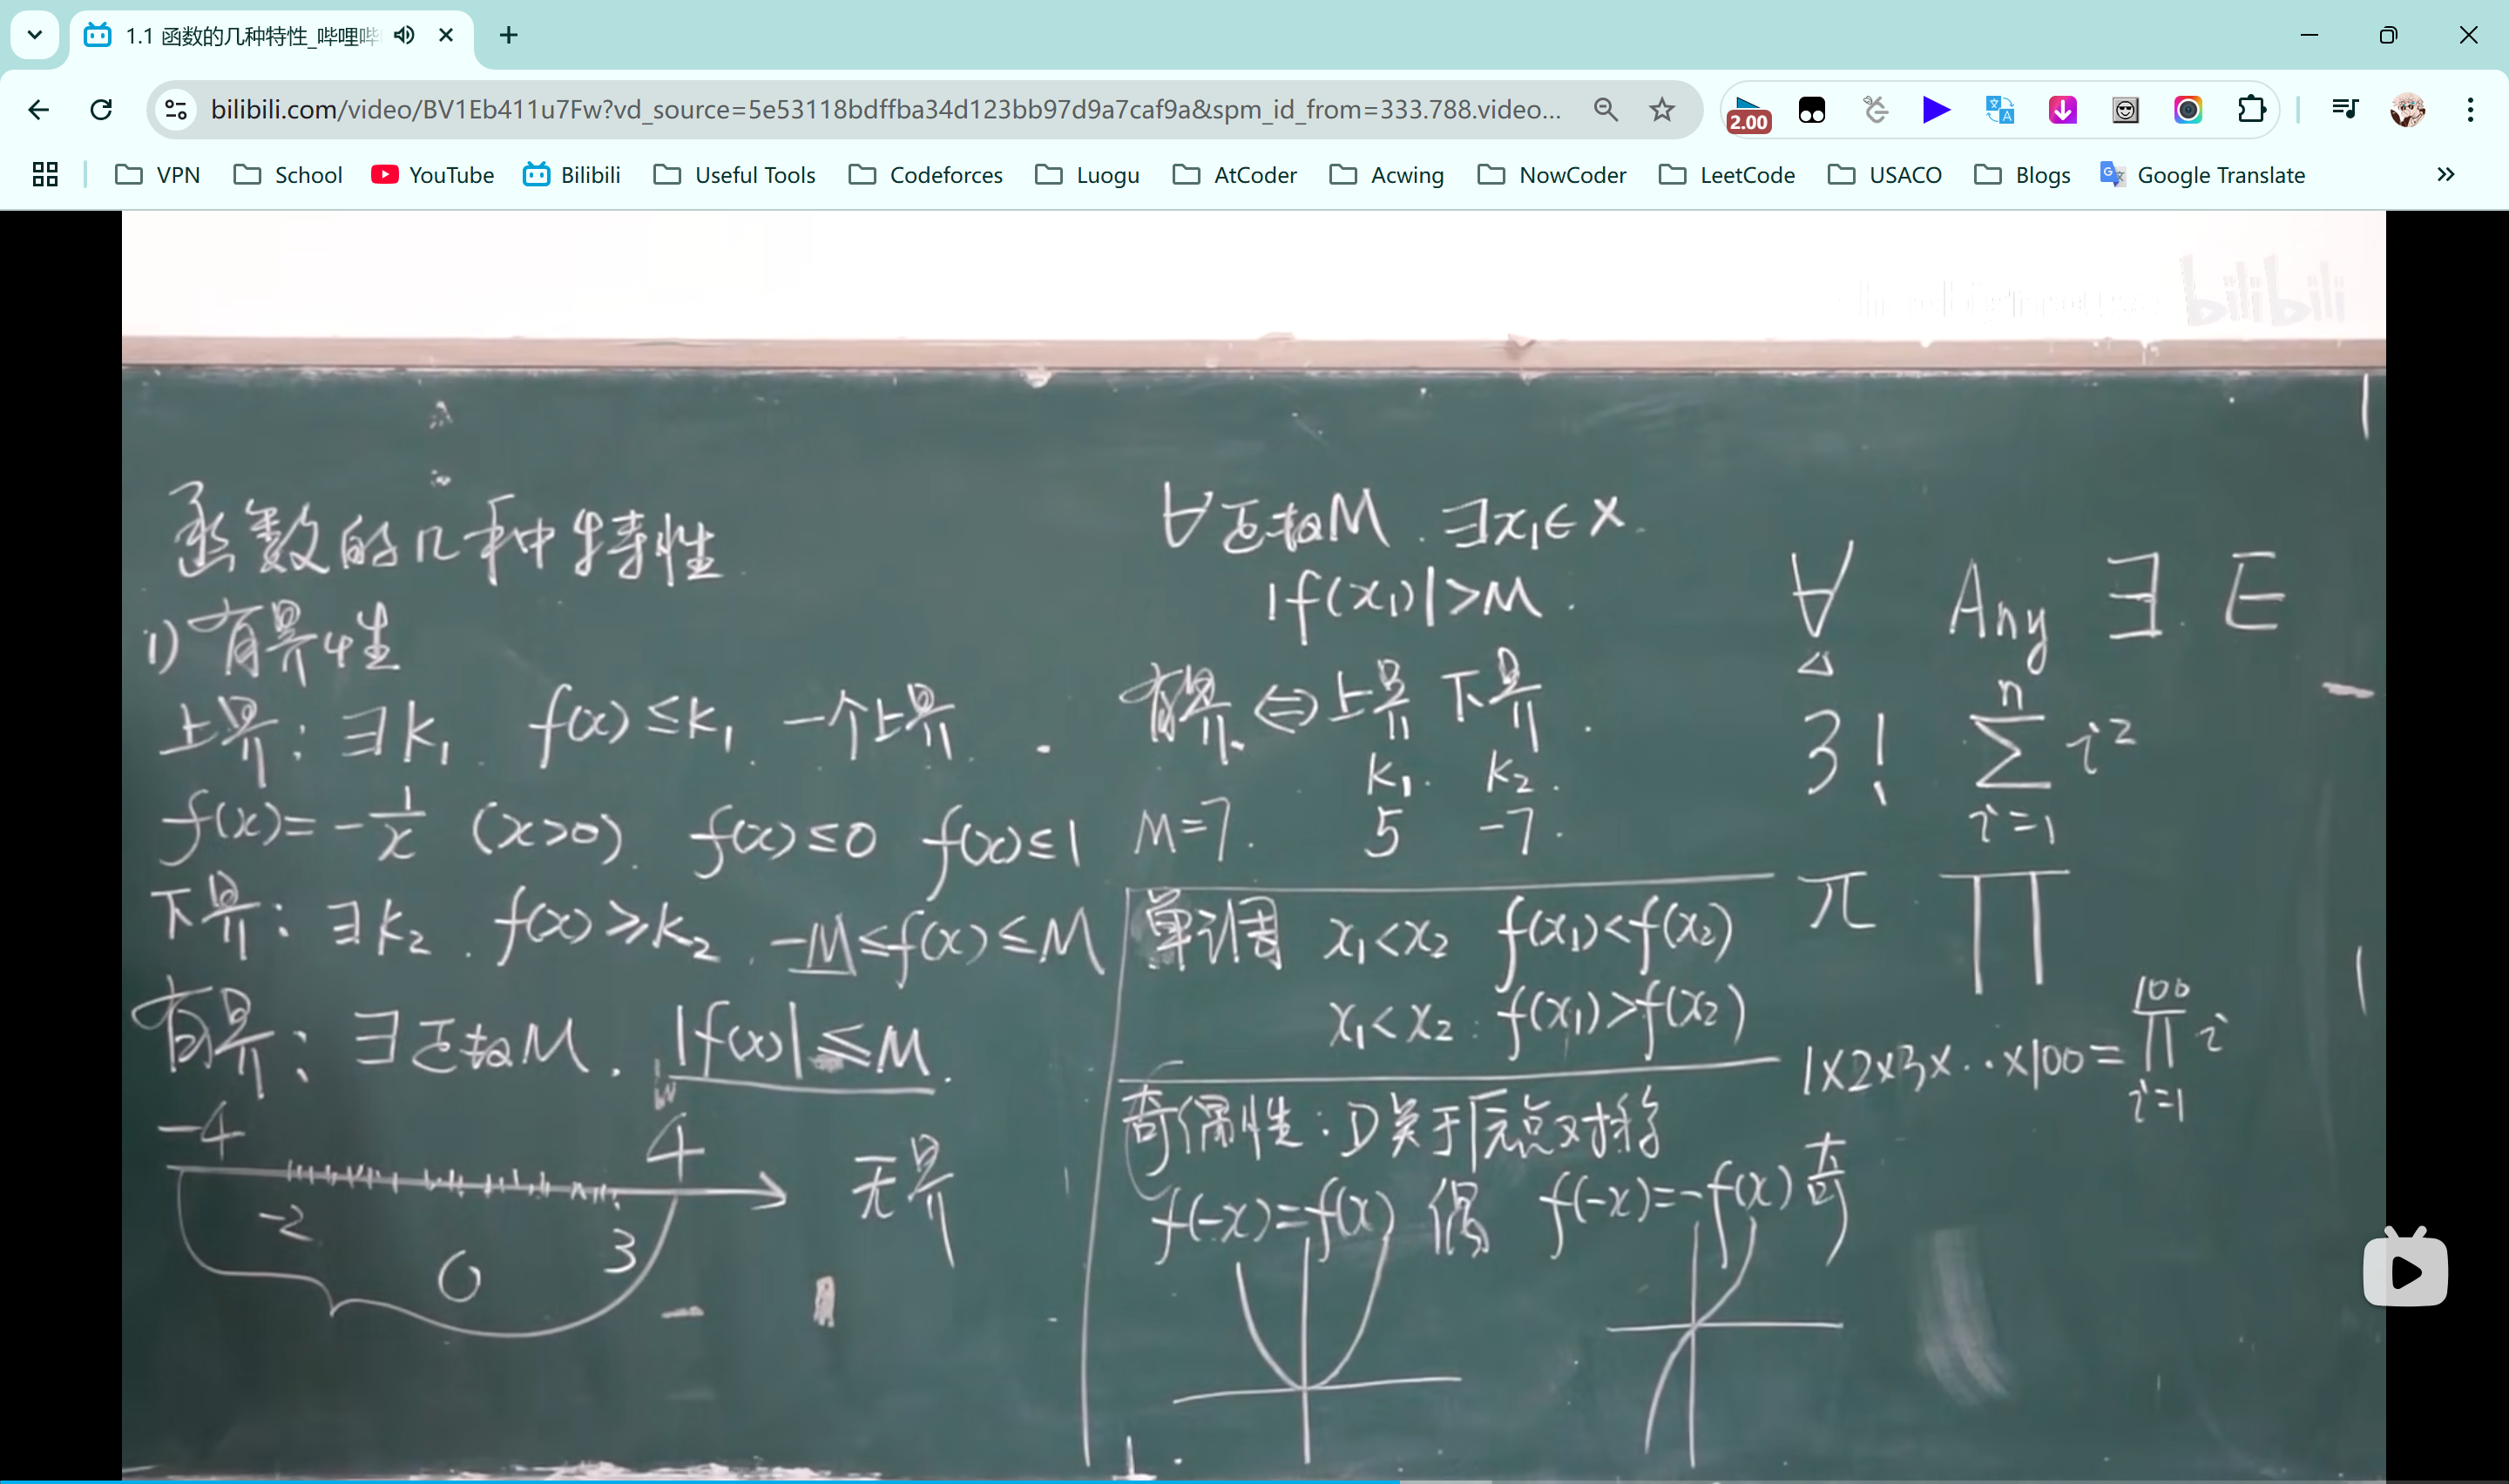 1.1 函数的几种特性_哔哩哔
bilibili.com/video/BV1Eb411u7Fw?vd_source=5e53118bdffba34d123bb97d9a7caf9a&spm_id_from=333.788.video...
2.00
VPN School YouTube Bilibili Useful Tools Codeforces Luogu AtCoder Acwing NowCoder LeetCode USACO Blogs Google Translate
bilibili
函数的几种特性
1) 有界性
上界: ∃k₁. f(x)≤k₁. 一个上界.
f(x)=-1/x (x>0). f(x)≤0 f(x)≤1
下界: ∃k₂. f(x)≥k₂. -M≤f(x)≤M
有界: ∃正数M. |f(x)|≤M.
-4 4
-2 0 3
无界
∀正数M. ∃x₁∈X.
|f(x₁)|>M.
有界. ⇔ 上界 下界.
k₁. k₂.
M=7. 5 -7.
单调 x₁<x₂ f(x₁)<f(x₂)
x₁<x₂. f(x₁)>f(x₂)
奇偶性: D关于原点对称
f(-x)=f(x) 偶 f(-x)=-f(x) 奇
∀ Any ∃. E
△
3! ∑ⁿᵢ₌₁ i²
π ∏
1×2×3×..×100=∏¹⁰⁰ᵢ₌₁ i